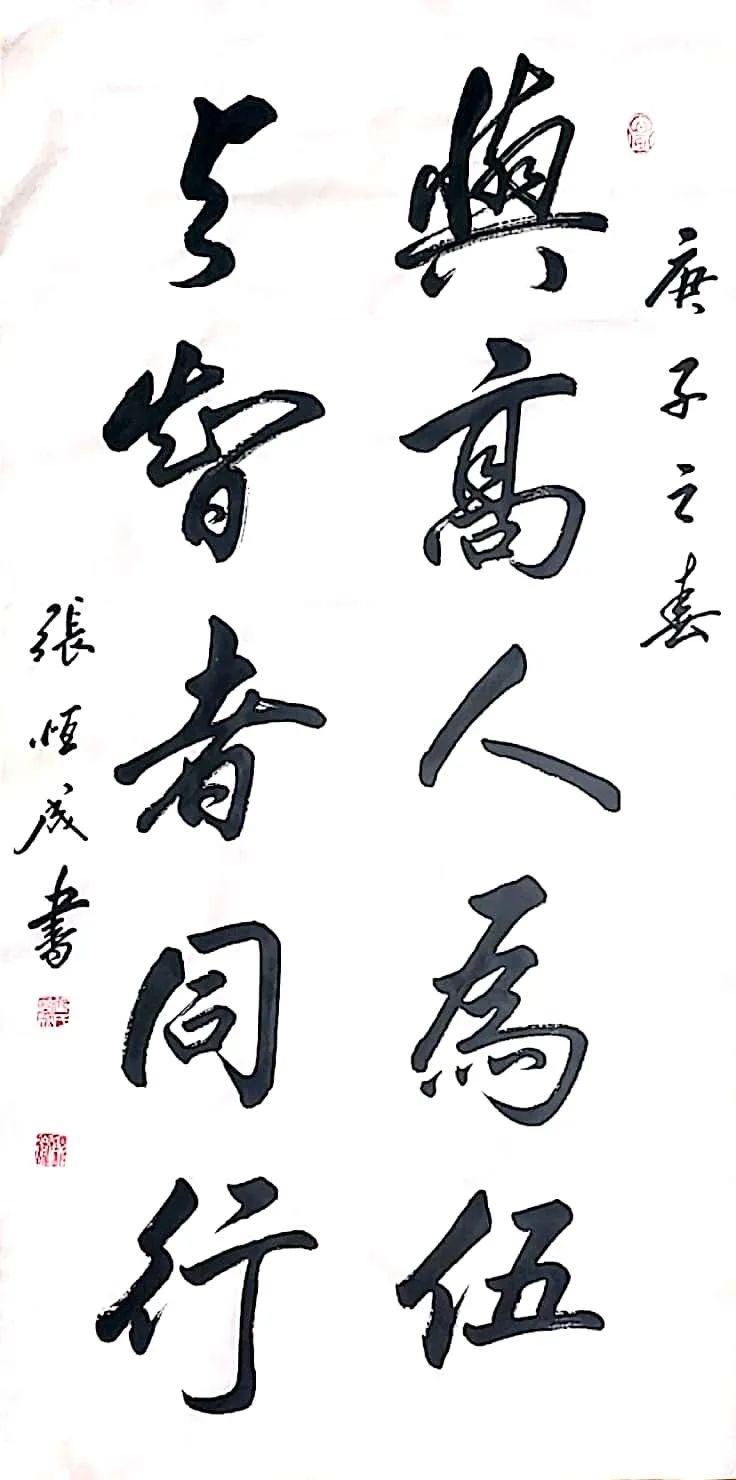 庚子之春
與高人為伍
与智者同行
張恒成書